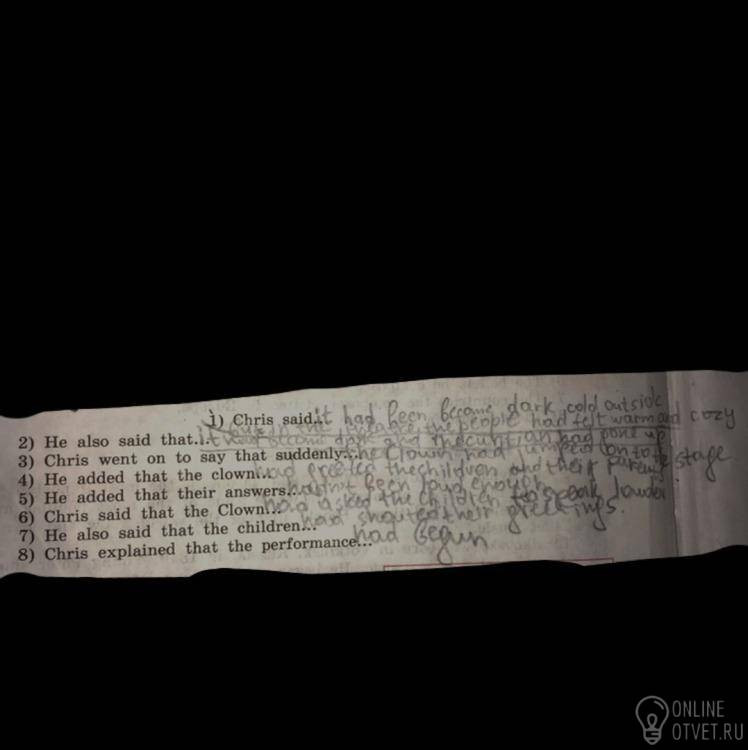 1) Chris said... it had been became dark, cold outside
the people had felt warm and cozy
2) He also said that... it had become dark and the curtian had gone up
3) Chris went on to say that suddenly... the Clown had jumped on to the stage
4) He added that the clown... had greeted the children and their parents
5) He added that their answers... hadn't been loud enough
6) Chris said that the Clown... had asked the children to speak louder
7) He also said that the children... had shouted their greetings.
8) Chris explained that the performance... had begun
ONLINE
OTVET.RU